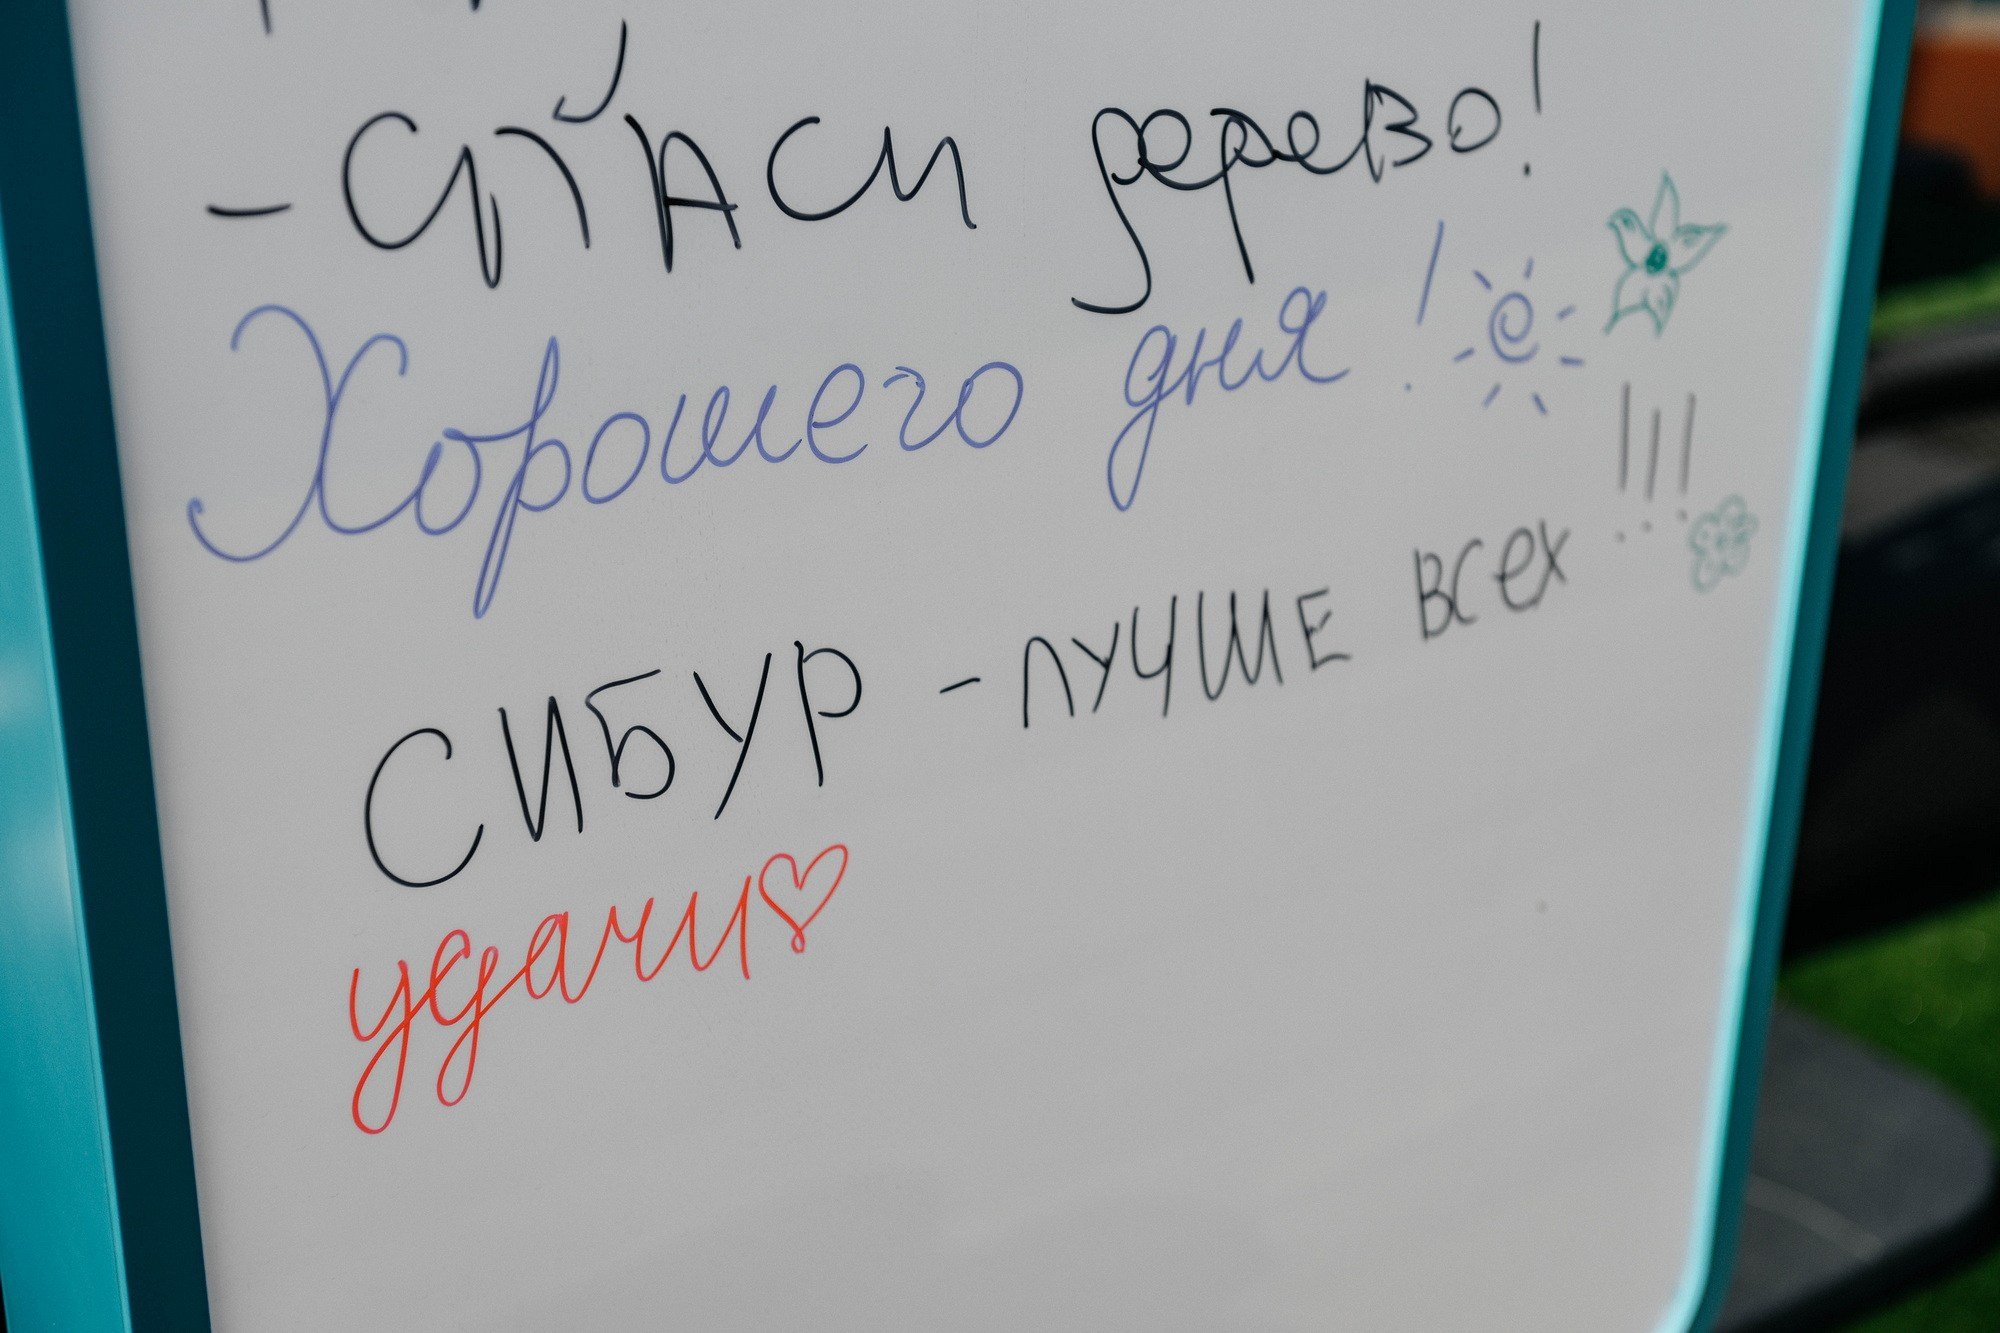 - СПАСИ дерево!
Хорошего дня!
СИБУР - ЛУЧШЕ ВСЕХ!!!
удачи♡